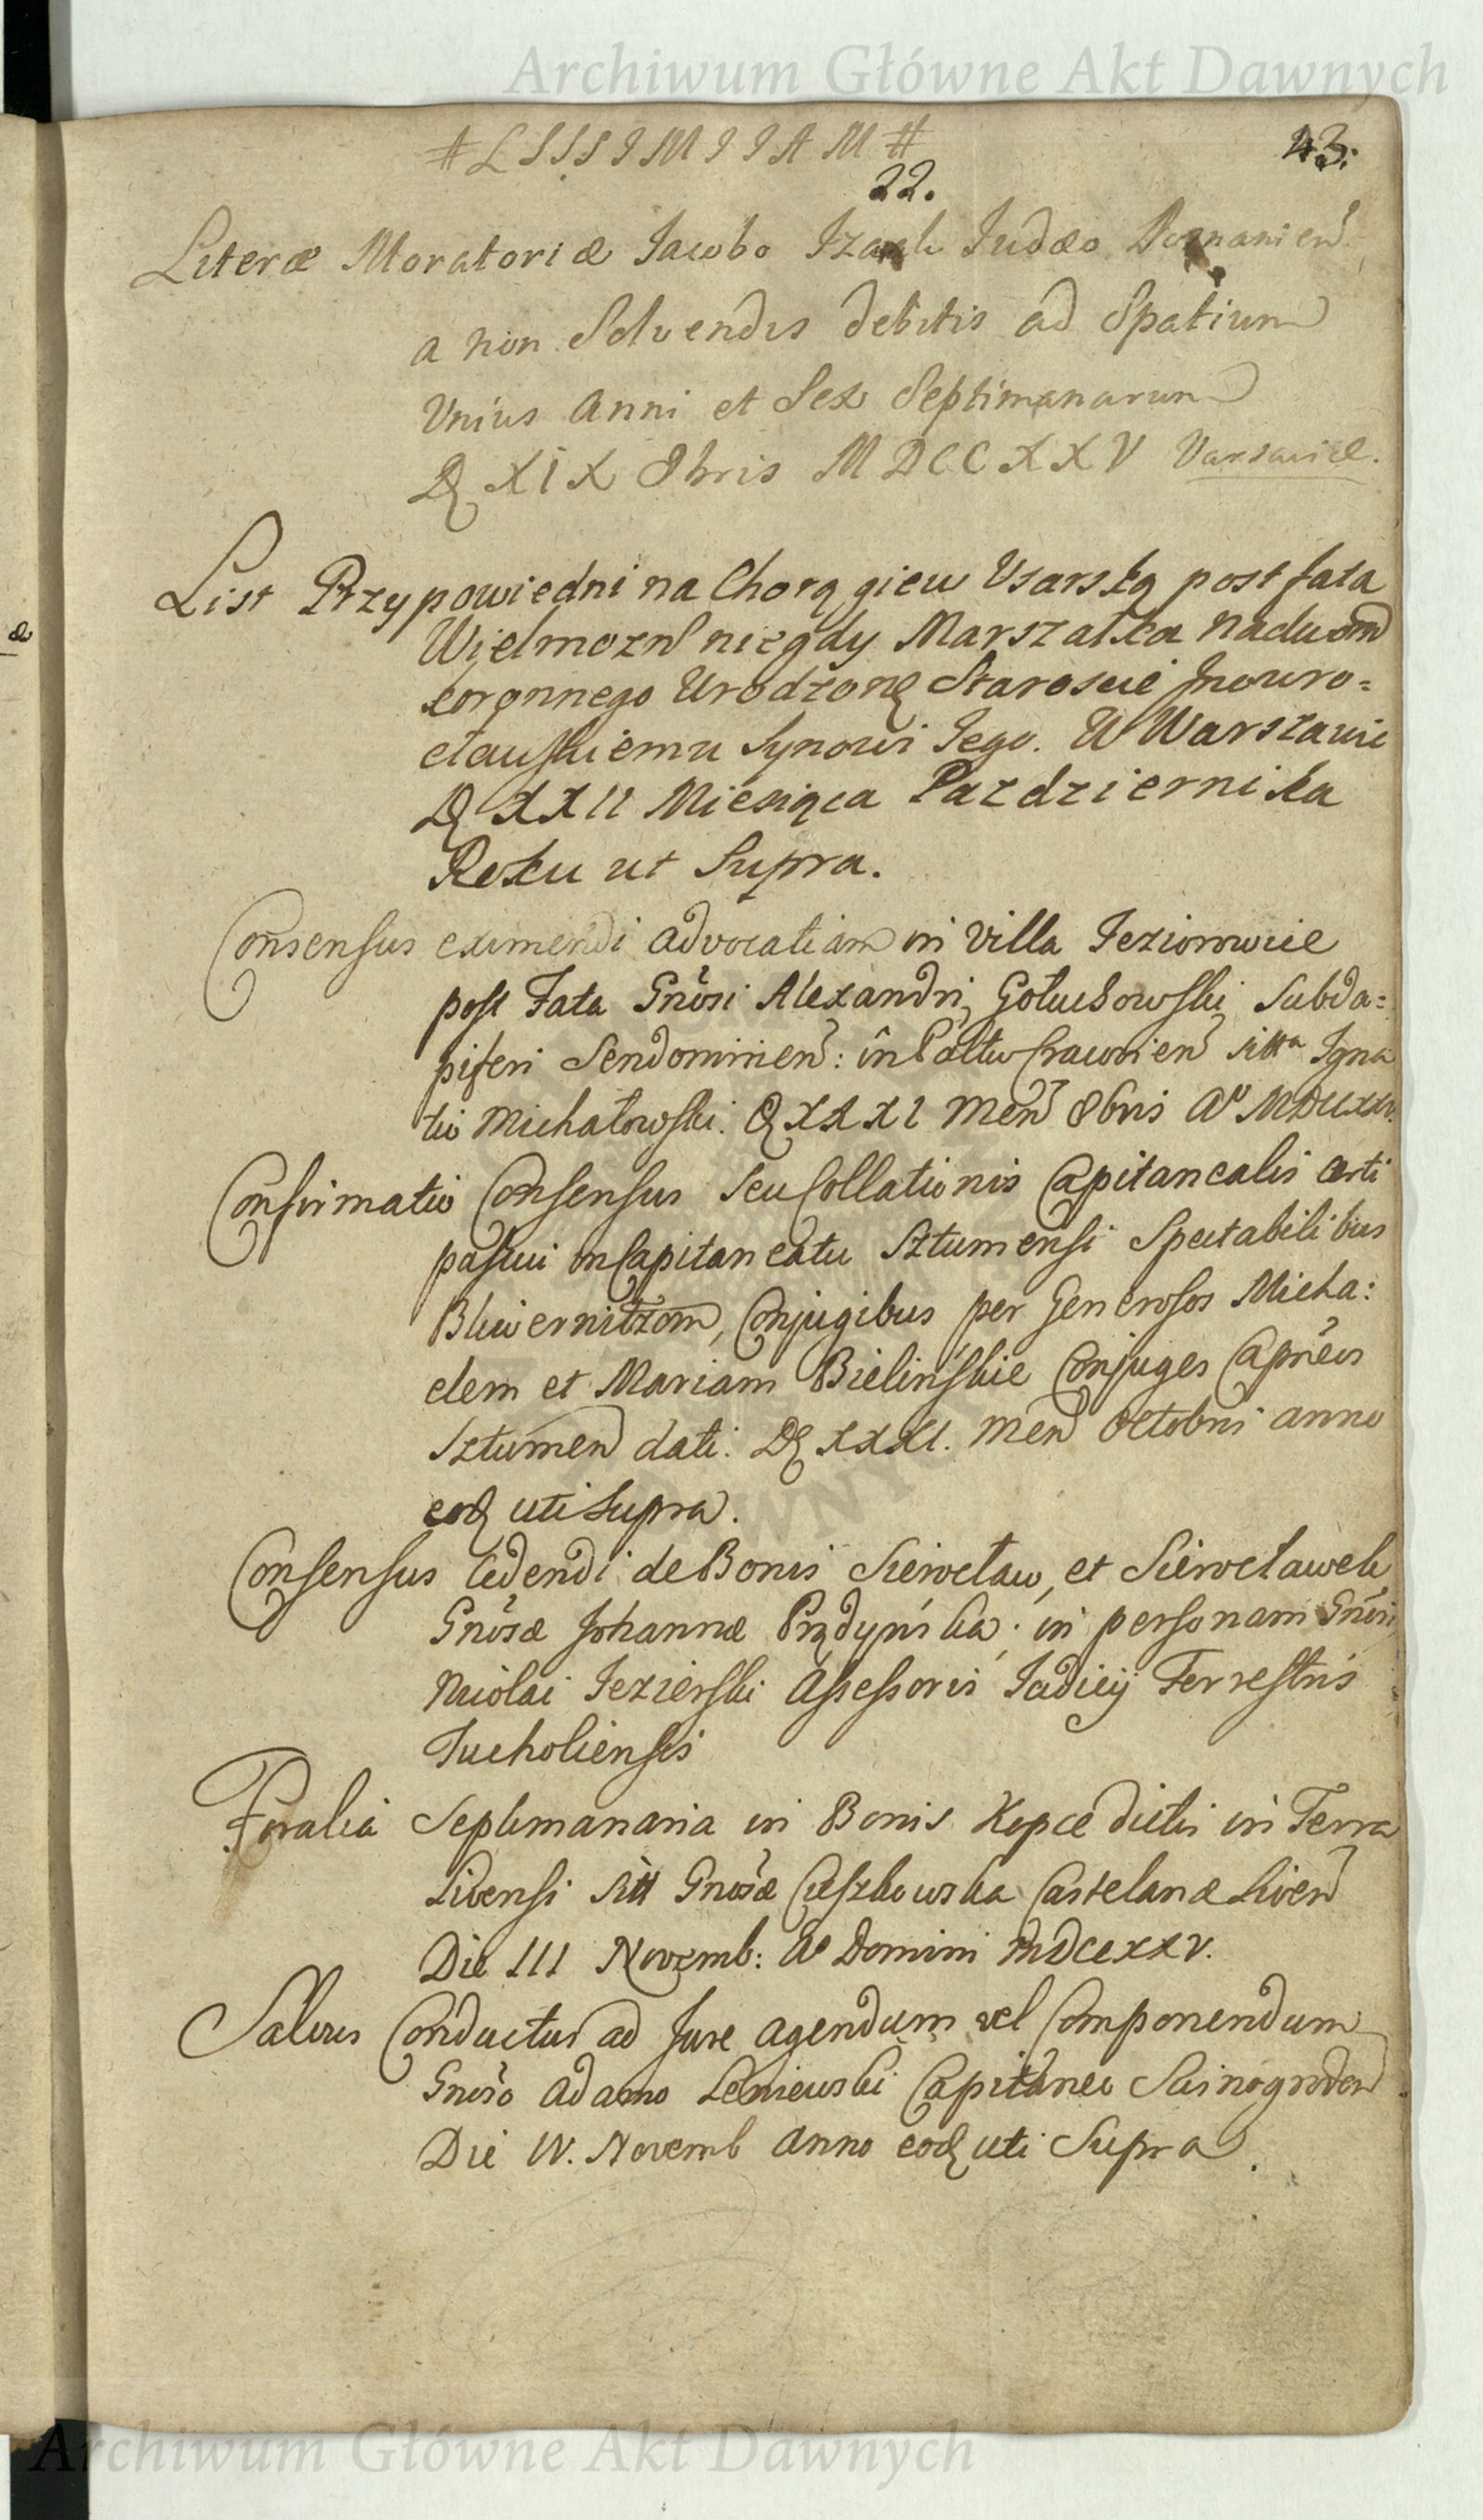 Archiwum Główne Akt Dawnych
# L S S S I M I I A M #
43.
22.
Literæ Moratoriæ Jacobo Izaak Judæo Poznanien
a non Solvendis debitis ad Spatium
Unius Anni et Sex Septimanarum
D XIX 8bris MDCCXXV Varsaviæ.
List Przypowiedni na Chorągiew Usarską post fata
Wielmozn niegdy Marszałka nadworn
koronnego Urodzone Staroscie Inowro=
cławskiemu Synowi Jego. W Warszawie
D XXII Miesiąca Pazdziernika
Roku ut Supra.
Consensus eximendi advocatiam in villa Jeziorowice
post Fata Gnosi Alexandri Gołuchowski Subda=
piferi Sendomirien: in Palttu Cracovien sitta Igna
tio Michałowski. D XXXI Men 8bris Ao MDCCXXV.
Confirmatio Consensus seu Collationis Capitanealis certi
pascui in Capitaneatu Sztumensi Spectabilibus
Conjugibus per Generosos Micha:
elem et Mariam Bielinskie Conjuges Capneos
Sztumen dati. D XXXI. Men Octobris anno
eod uti Supra.
Consensus Cedendi de Bonis Sierocław, et Sierocławek
Gnosæ Johannæ Prądyńska in personam Gnosi
Nicolai Jezierski Assessoris Judicij Terrestris
Tucholiensis
Foralia Septimanaria in Bonis Kopce dictis in Terra
Livensi sitt Gnosæ Cieszkowska Castelanæ Liven
Die III Novemb: Ao Domini MDCCXXV.
Salvus Conductus ad Jure agendum vel Componendum
Gnoso Adamo Leniewski Capitaneo
Die IV. Novemb Anno eod uti Supra.
Archiwum Główne Akt Dawnych